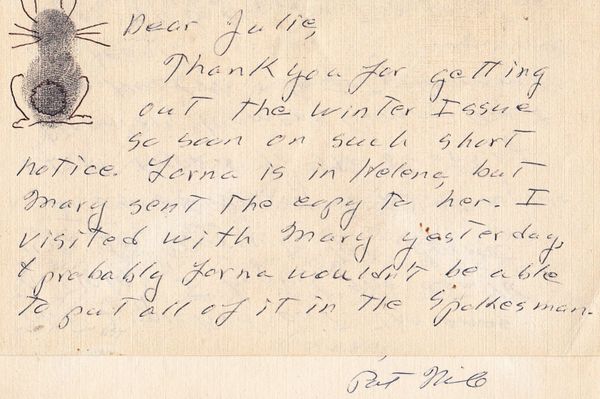 Dear Julie,
Thank you for getting
out the winter Issue
so soon on such short
notice. Lorna is in Helena, but
Mary sent the copy to her. I
visited with Mary yesterday,
& probably Lorna wouldn't be able
to put all of it in the Spokesman.
Pat